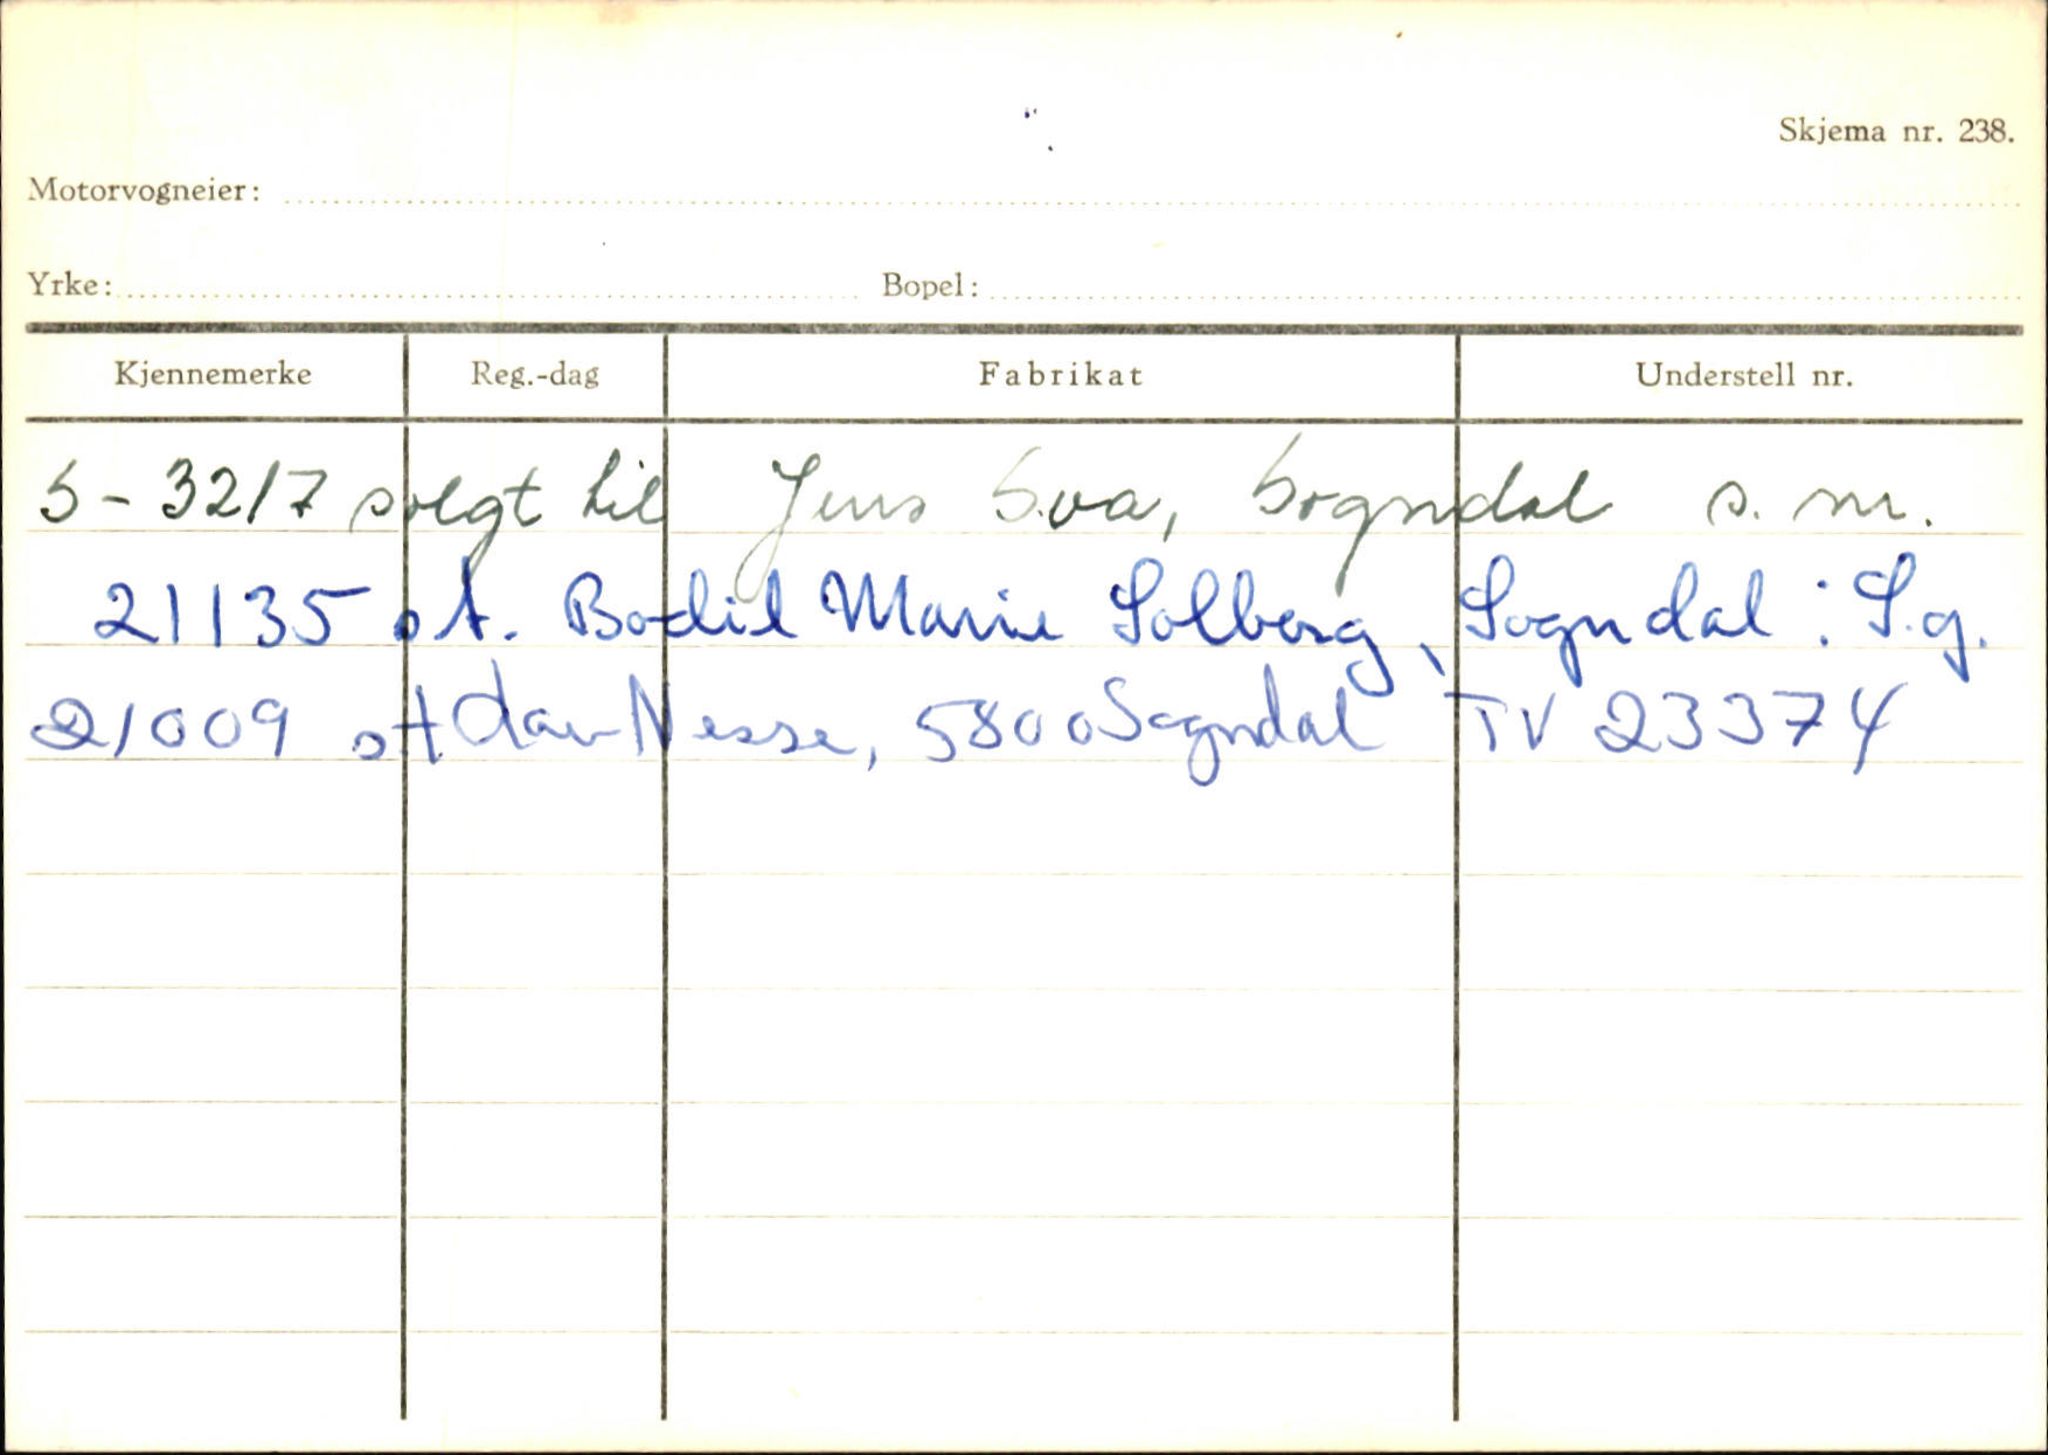 Skjema nr. 238.
Motorvogneier:
Yrke: Bopel:
Kjennemerke Reg.-dag Fabrikat Understell nr.
S-3217 solgt til Jens Eva, Sogndal s. nr.
21135 st. Bodil Marie Solberg, Sogndal : S.g.
21009 st Nesse, 5800 Sogndal TV 23374